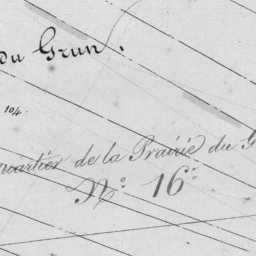 du Grun.
104.
quartier de la Prairie du G
N.° 16.°